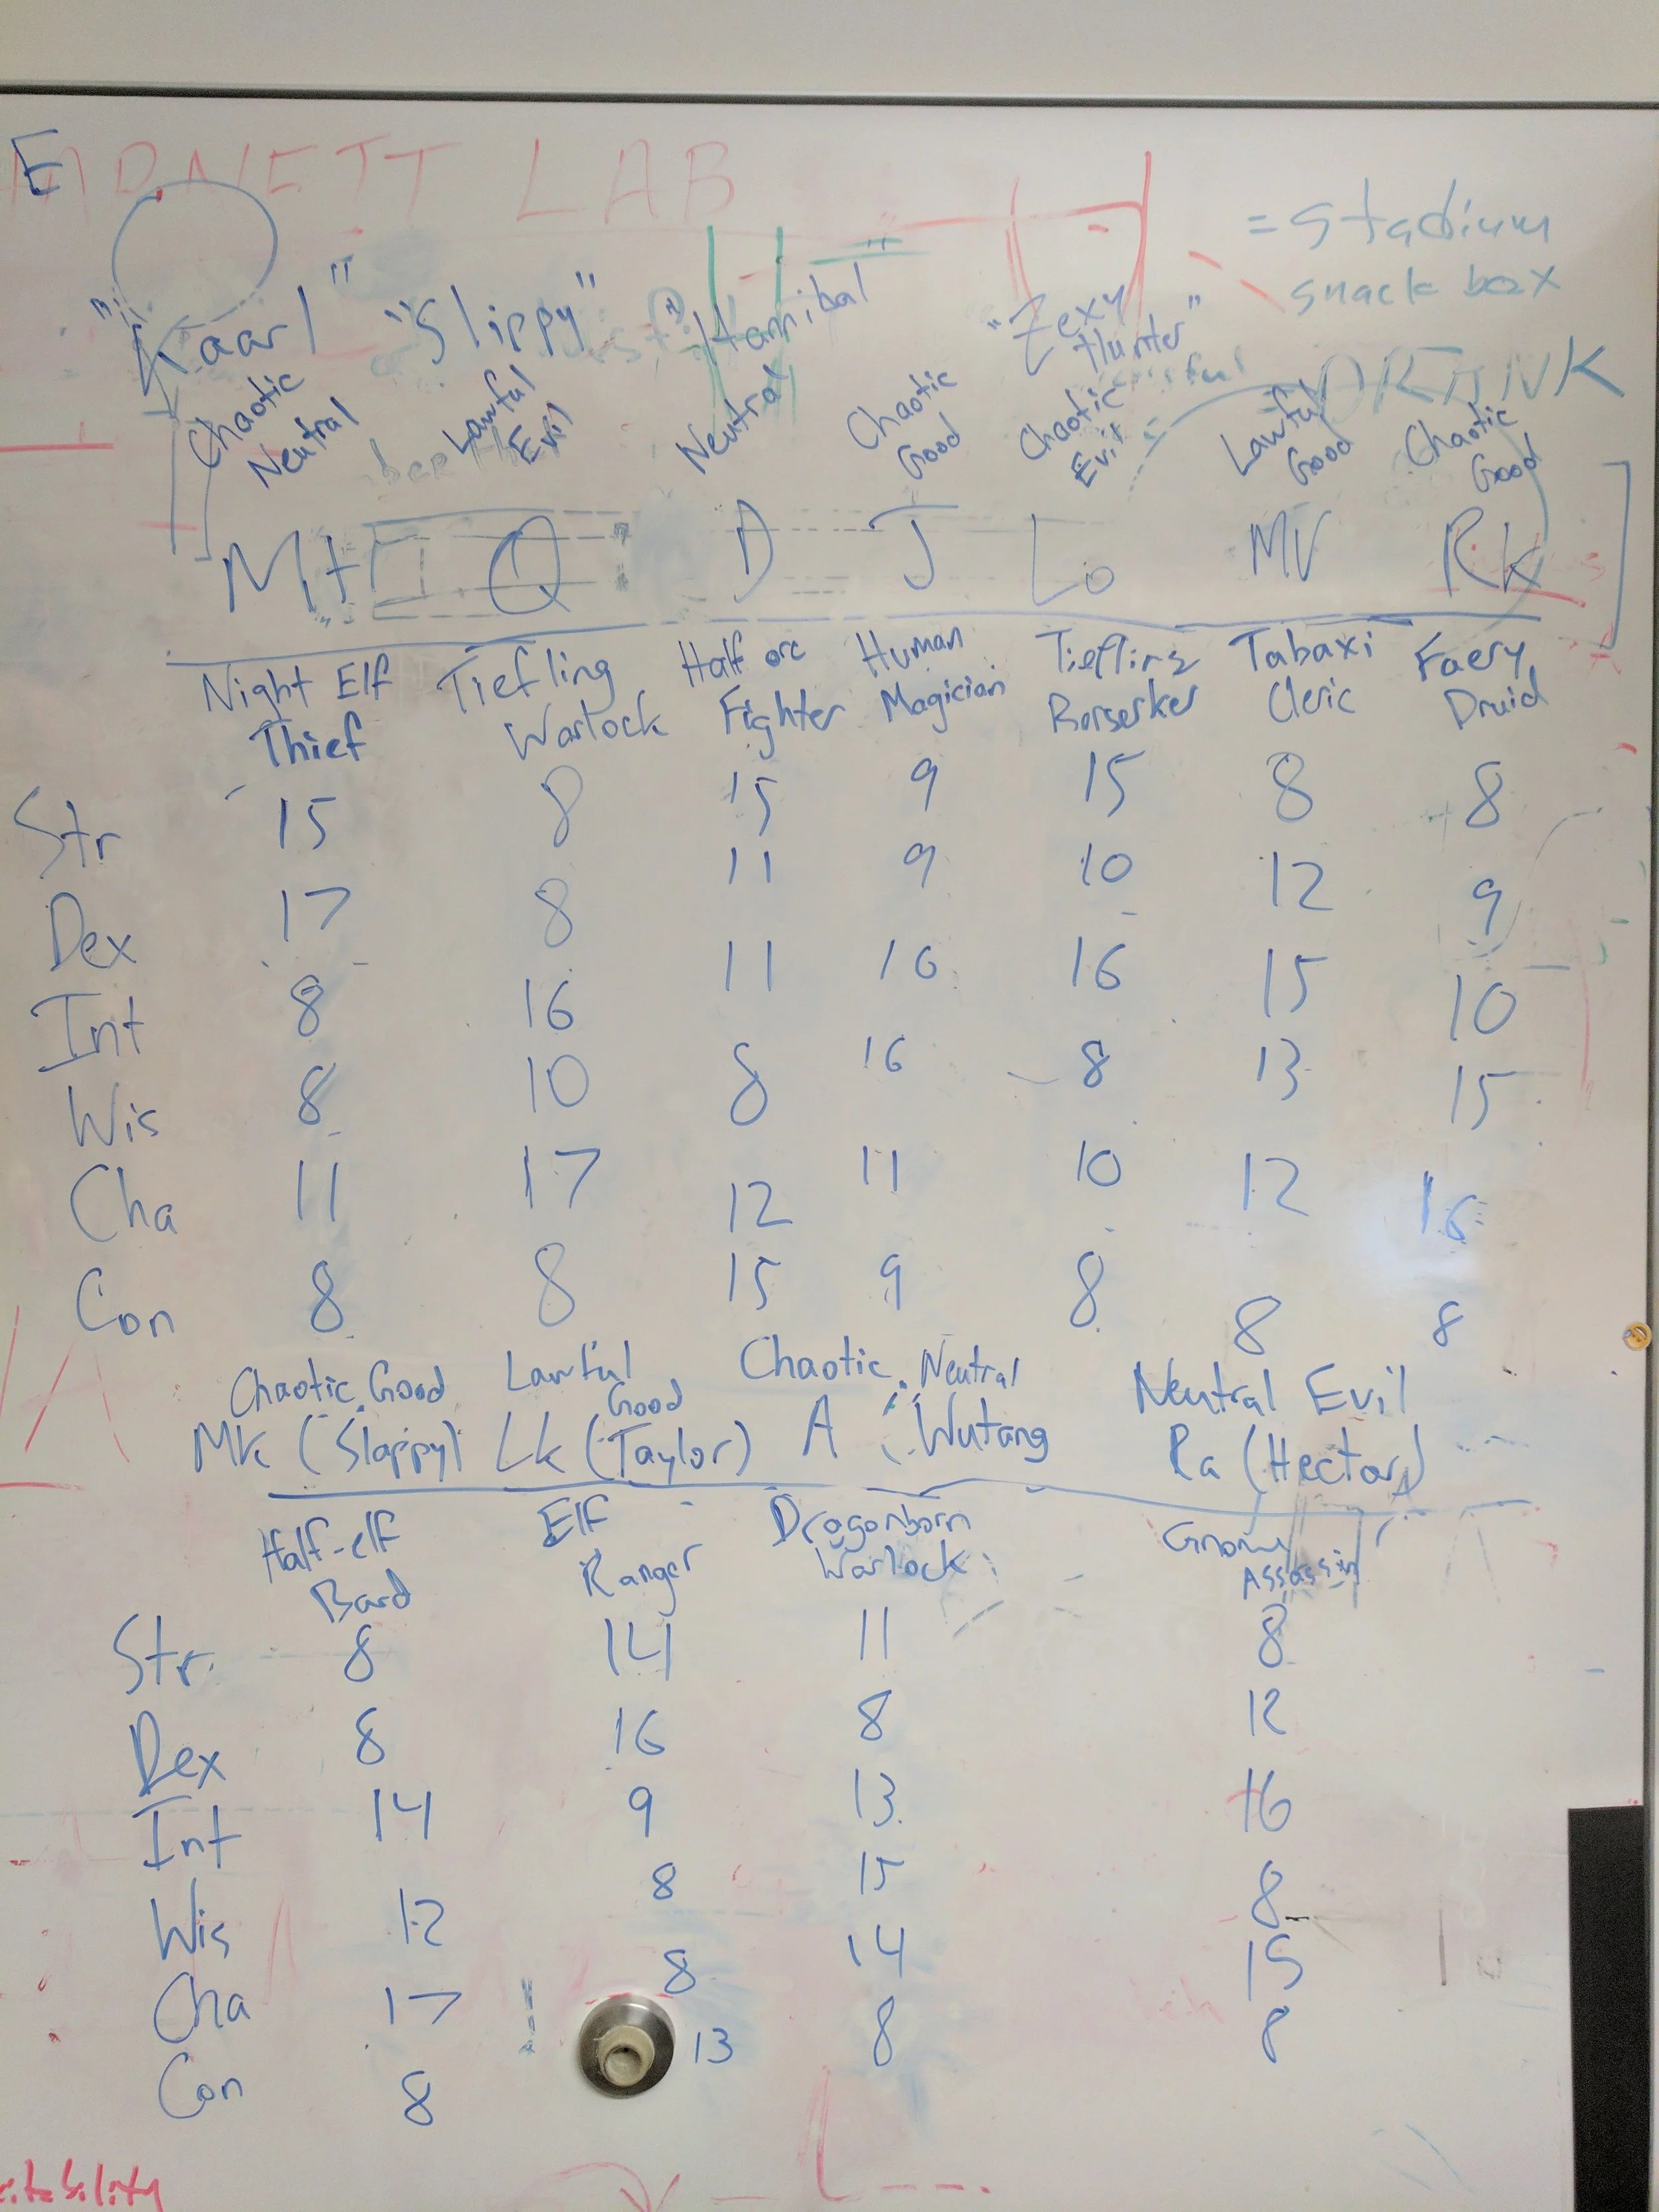 E
LAB
= Stadium
snack box
"Kaarl" "Slippy" "Hannibal "Zexy
Hunter"
DRINK
Chaotic Neutral Lawful Evil Neutral Chaotic Good Chaotic Evil Lawful Good Chaotic Good
Mt Q D J Lo MV Rk
Night Elf Tiefling Half orc Human Tiefling Tabaxi Faery
Thief Warlock Fighter Magician Berserker Cleric Druid
Str 15 8 15 9 15 8 8
Dex 17 8 11 9 10 12 9
Int 8 16 11 16 16 15 10
Wis 8 10 8 16 8 13 15
Cha 11 17 12 11 10 12 16
Con 8 8 15 9 8 8 8
Chaotic Good Lawful Good Chaotic Neutral Neutral Evil
Mk (Slappy) Lk (Taylor) A (Wutang Ra (Hector)
Half-elf Elf Dragonborn Gnome
Bard Ranger Warlock Assassin
Str 8 14 11 8
Dex 8 16 8 12
Int 14 9 13 16
Wis 12 8 15 8
Cha 17 8 14 15
Con 8 13 8 8